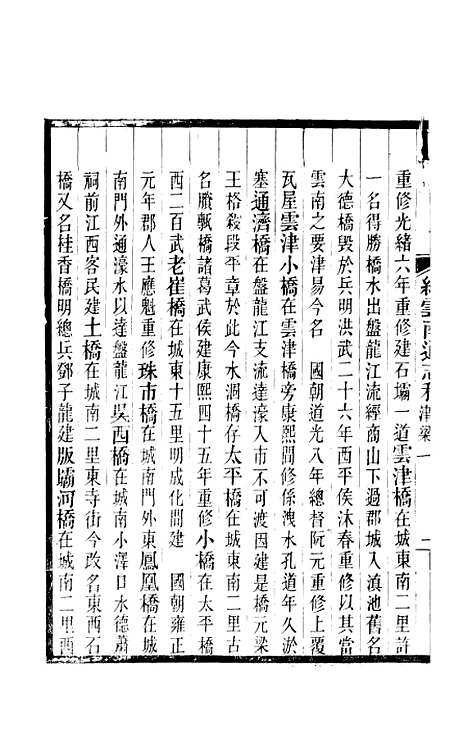 續雲南通志稿 津梁 一
重修光緒六年重修建石壩一道雲津橋在城東南二里許
一名得勝橋水出盤龍江流經商山下過郡城入滇池舊名
大德橋毀於兵明洪武二十六年西平侯沐春重修以其當
雲南之要津易今名 國朝道光八年總督阮元重修上覆
瓦屋雲津小橋在雲津橋旁康熙間修係洩水孔道年久淤
塞通濟橋在盤龍江支流達濠入市不可渡因建是橋元梁
王格殺段平章於此今水涸橋存太平橋在城東南二里古
名賸甎橋諸葛武侯建康熙四十年重修小橋在太平橋
西二百武老崔橋在城東十五里明成化間建 國朝雍正
元年郡人王應魁重修珠市橋在城南門外東鳳凰橋在城
南門外通濠水以達盤龍江吳西橋在城南小澤口水德蕭
祠前江西客民建土橋在城南二里東寺街今改名東西石
橋又名桂香橋明總兵鄧子龍建版壩河橋在城南二里西